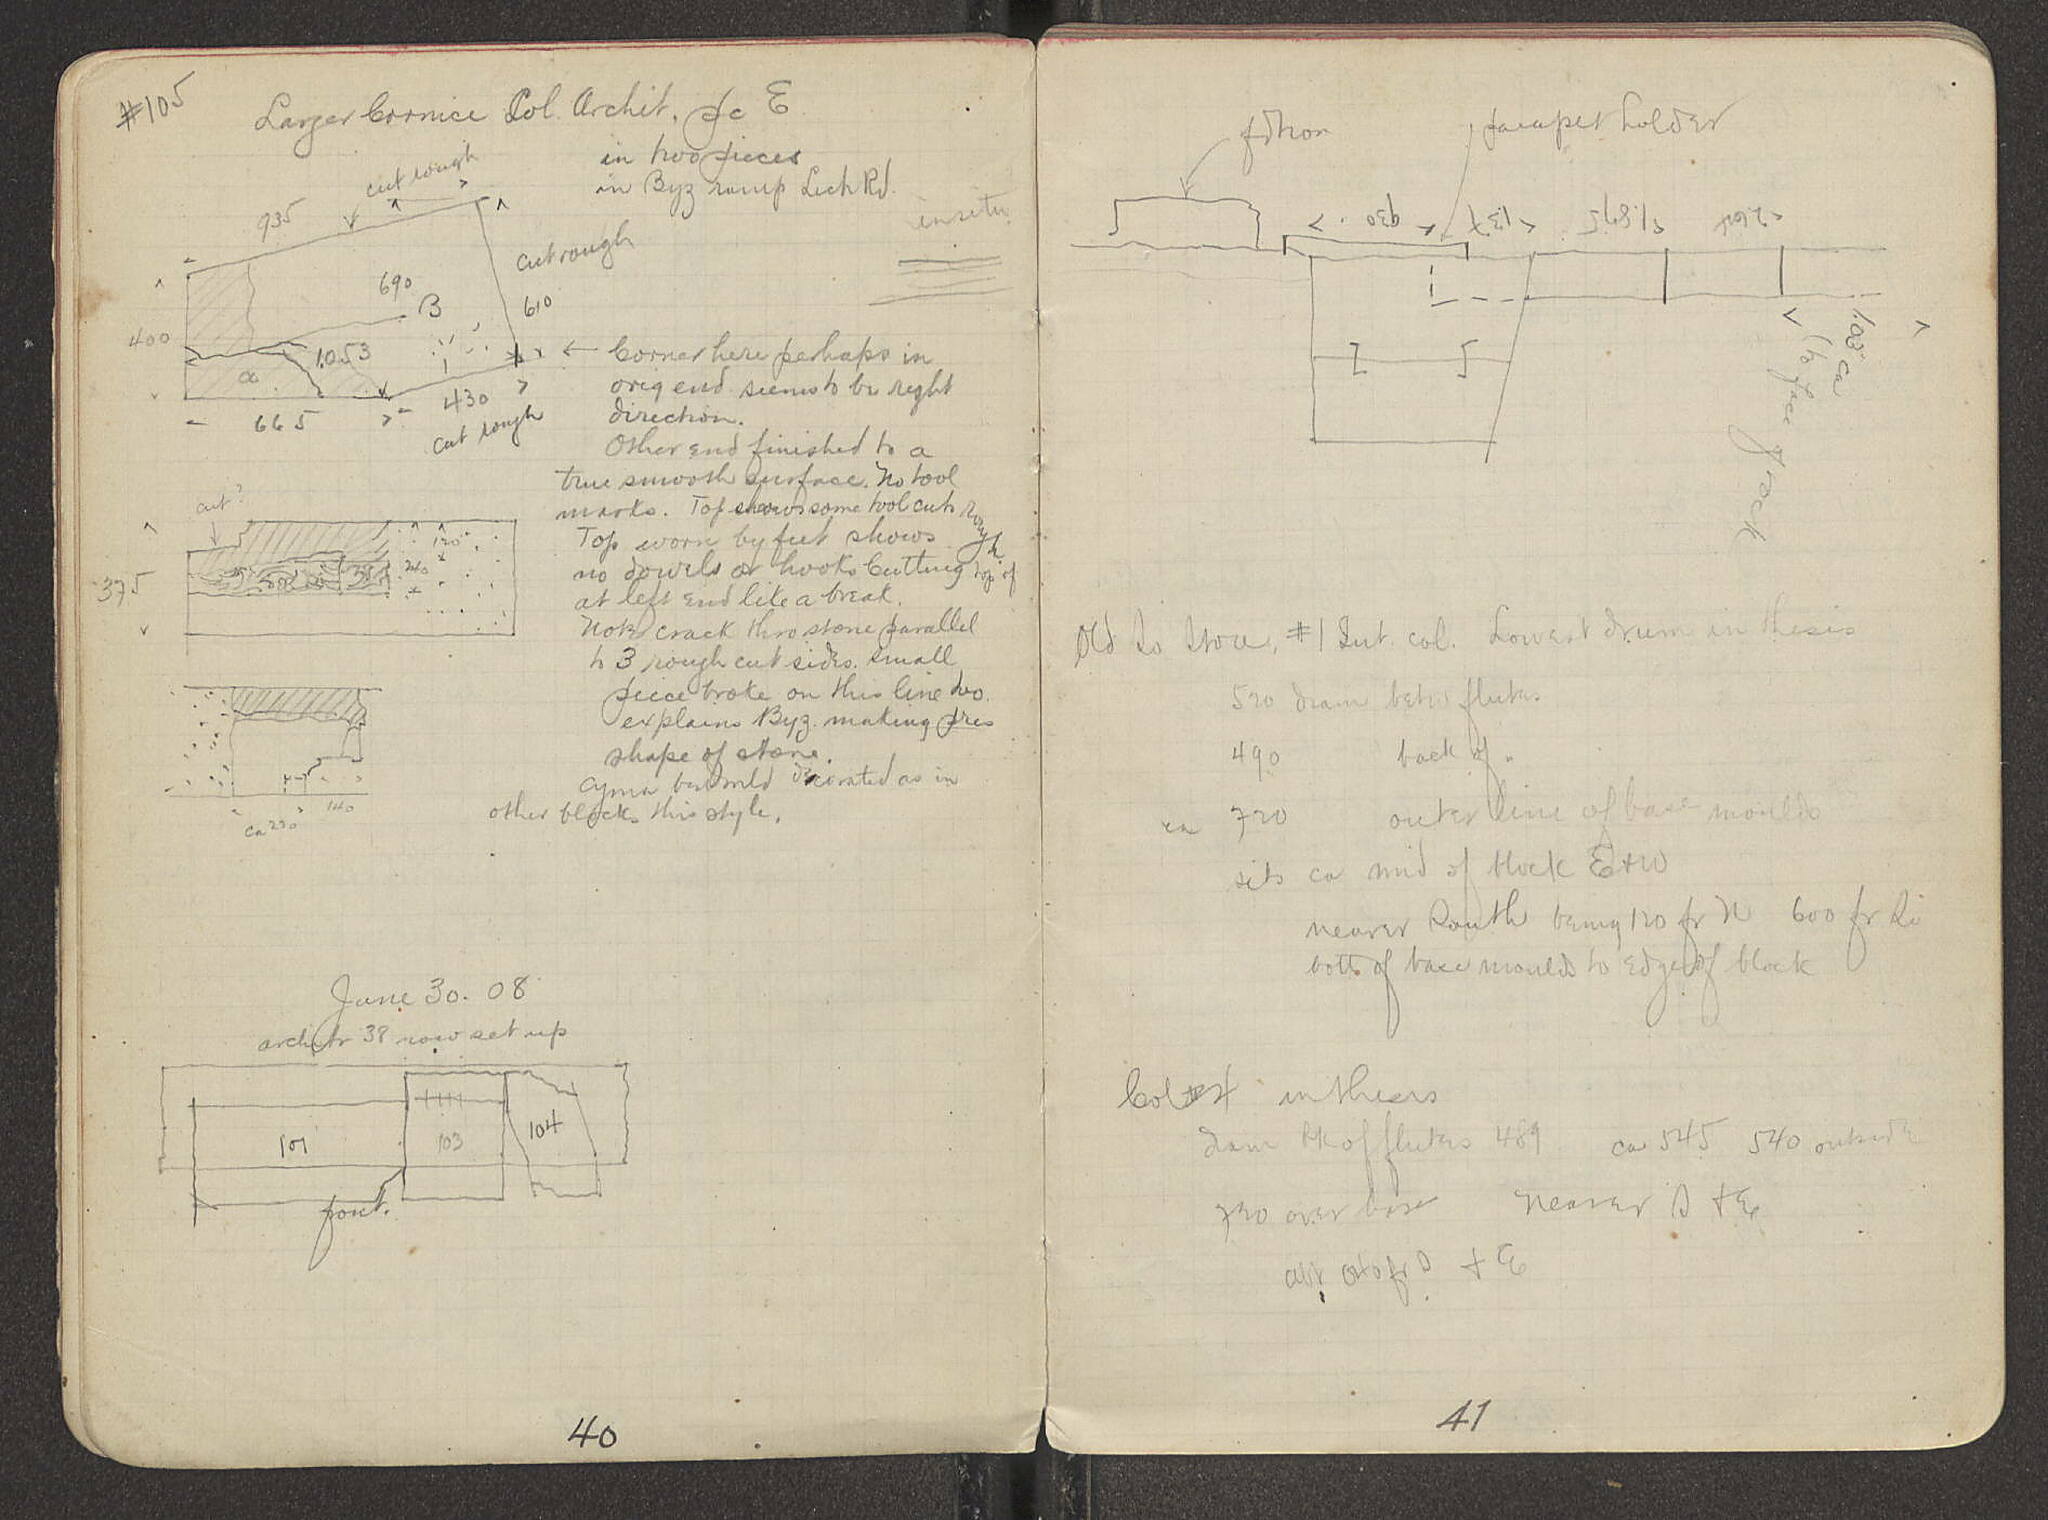 #105
Larger Cornice Col. Archit. pc E
in two pieces
in Byz ramp Lech Rd.
in situ
cut rough
935
cut rough
690
B
610
400
1.053
α
665
430
cut rough
← Corner here perhaps in
orig end seems to be right
direction.
Other end finished to a
true smooth surface. No tool
marks. Top shows some tool cuts
rough
Top worn by feet shows
no dowels or hooks Cutting top of
at left end like a break.
Note crack thro stone parallel
to 3 rough cut sides. small
piece broke on this line too.
explains Byz. making pres
shape of stone.
cyma bed mld decorated as in
other blocks this style.
cut?
120
240
375
ca 230
140
June 30. 08
architr 38 now set up
101
103
104
front.
40
parapet holder
930
1.37
1.875
1.00 ca
(to face of rock
Old So Stoa, #1 Int. col. Lowest drum in thesis
520 diam betw flutes.
490 back of "
ca 720 outer line of base moulds
sits ca mid of block E + W
nearer South being 120 fr N 600 fr So
bott. of base moulds to edge of block
Col #4 in theirs
diam bk of flutes 489 ca 545 540 outside
720 over base nearer S + E
abt fr S + E
41